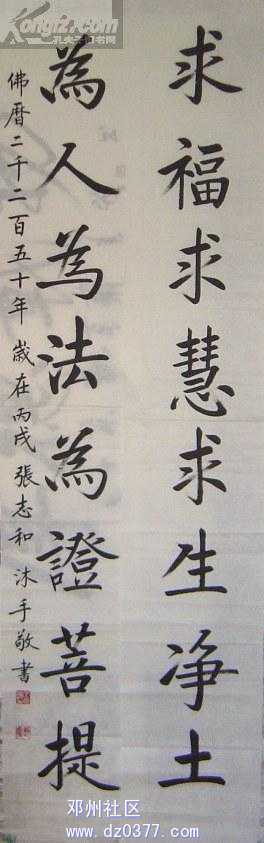 求福求慧求生净土
為人為法為證菩提
佛曆二千二百五十年歲在丙戌張志和沐手敬書
Kongfz.com
孔夫子旧书网
邓州社区
www.dz0377.com